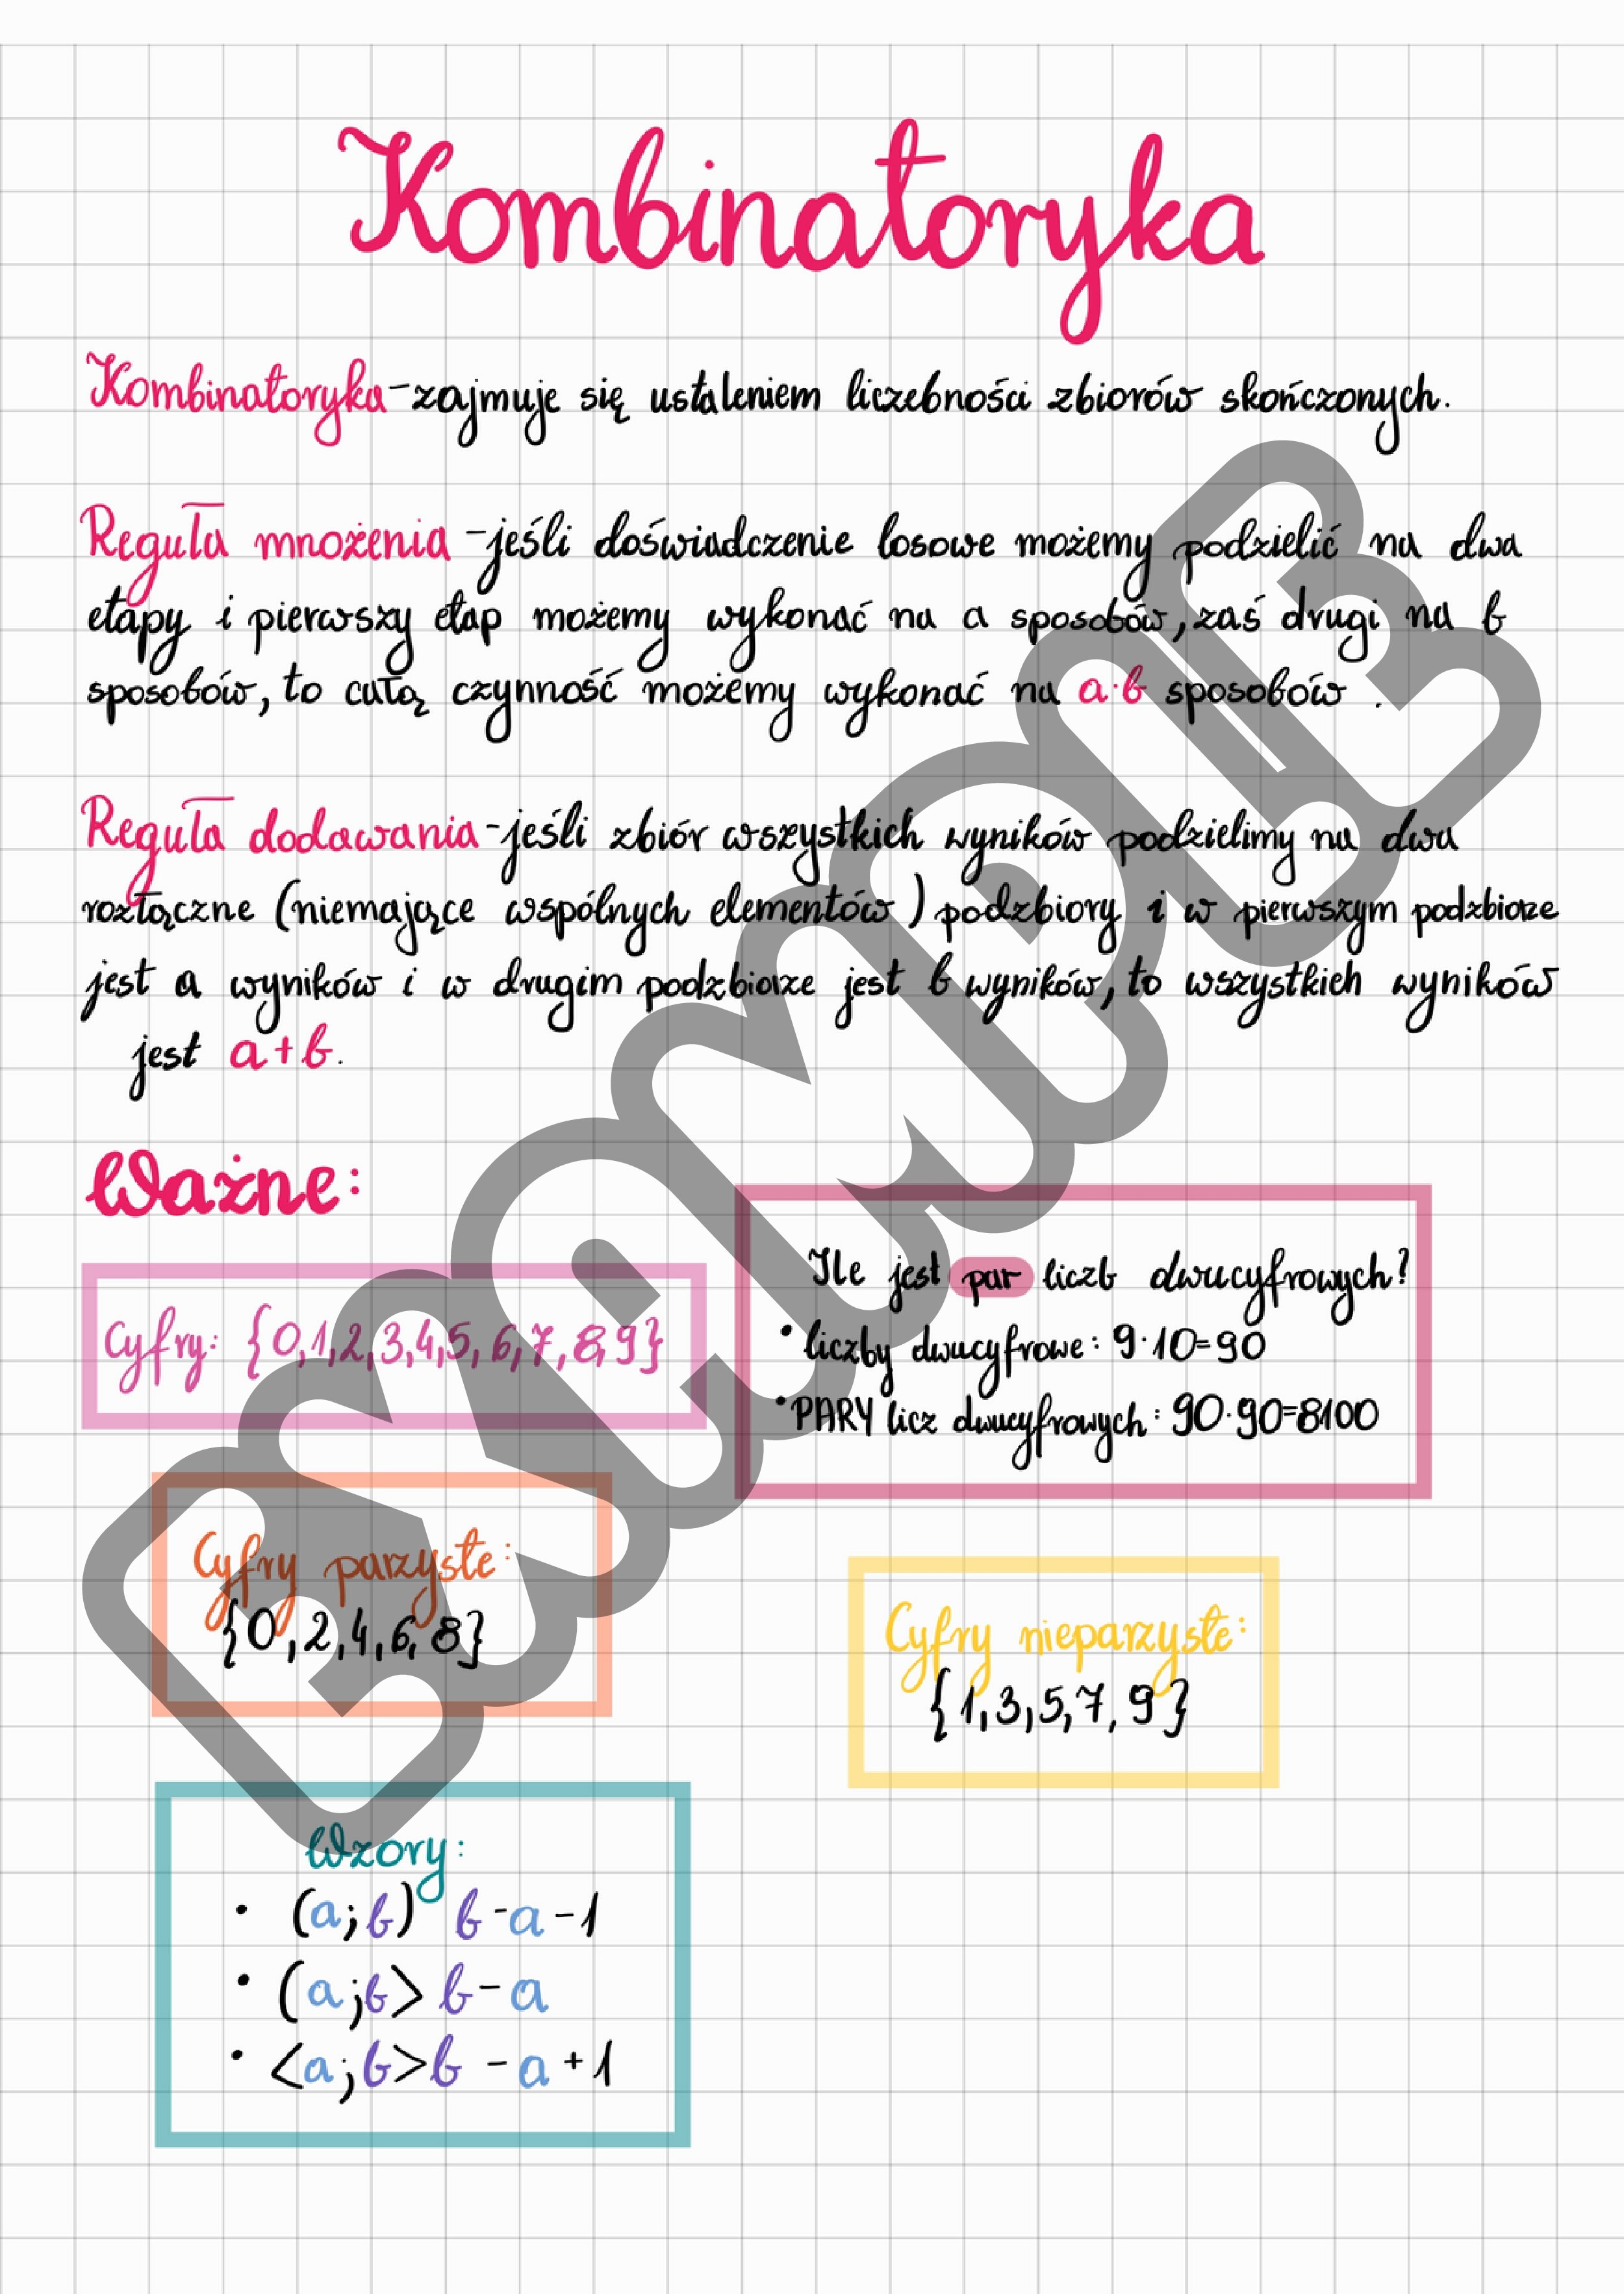 Kombinatoryka
Kombinatoryka - zajmuje się ustaleniem liczebności zbiorów skończonych.
Reguła mnożenia - jeśli doświadczenie losowe możemy podzielić na dwa
etapy i pierwszy etap możemy wykonać na a sposobów, zaś drugi na b
sposobów, to całą czynność możemy wykonać na a·b sposobów.
Reguła dodawania - jeśli zbiór wszystkich wyników podzielimy na dwa
rozłączne (niemające wspólnych elementów) podzbiory i w pierwszym podzbiorze
jest a wyników i w drugim podzbiorze jest b wyników, to wszystkich wyników
jest a+b.
Ważne:
Cyfry: {0,1,2,3,4,5,6,7,8,9}
Ile jest par liczb dwucyfrowych?
• liczby dwucyfrowe: 9·10=90
• PARY licz dwucyfrowych: 90·90=8100
Cyfry parzyste:
{0,2,4,6,8}
Cyfry nieparzyste:
{1,3,5,7,9}
Wzory:
• (a;b) b-a-1
• (a;b> b-a
• <a;b> b-a+1